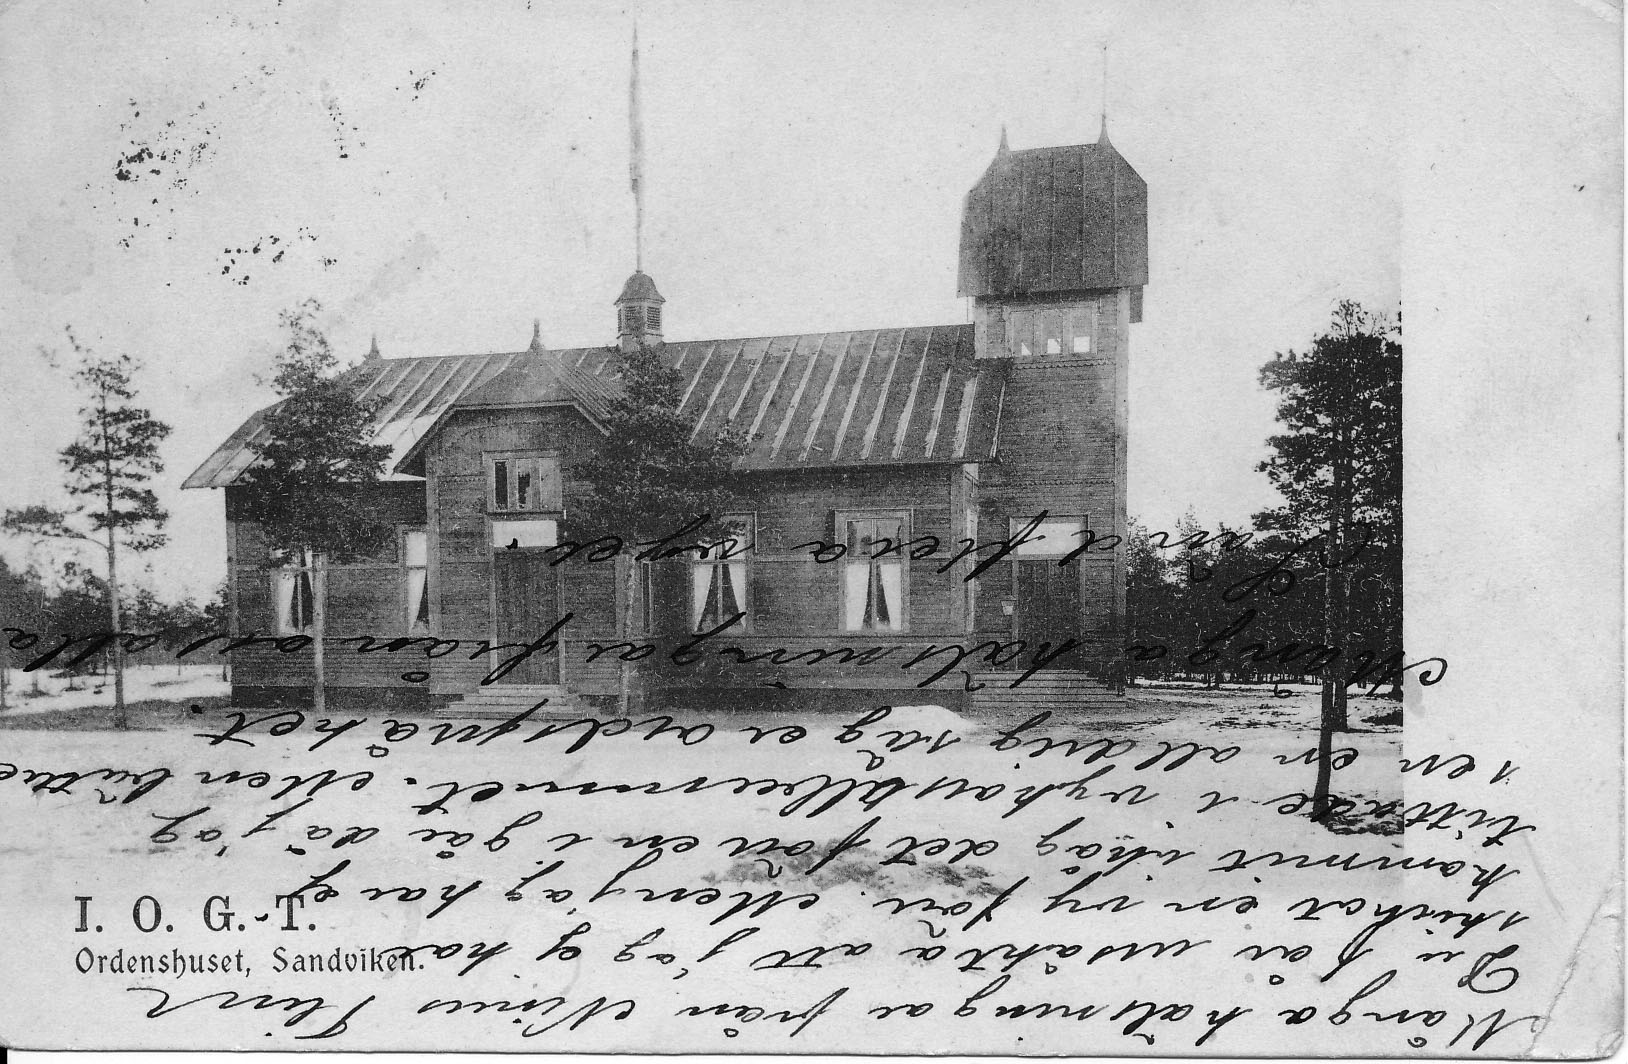 I. O. G.-T.
Ordenshuset, Sandviken.
Många hälsningar från
Du får ursäkta att jag ej har
skickat en vy förr. Men jag har ej
kommit ihåg det förr en i går då jag
tittade i vykortsalbummet. Men bättre
sen en alldrig säger ordspråket.
Många hälsningar från oss alla
Sänd flera vyer.